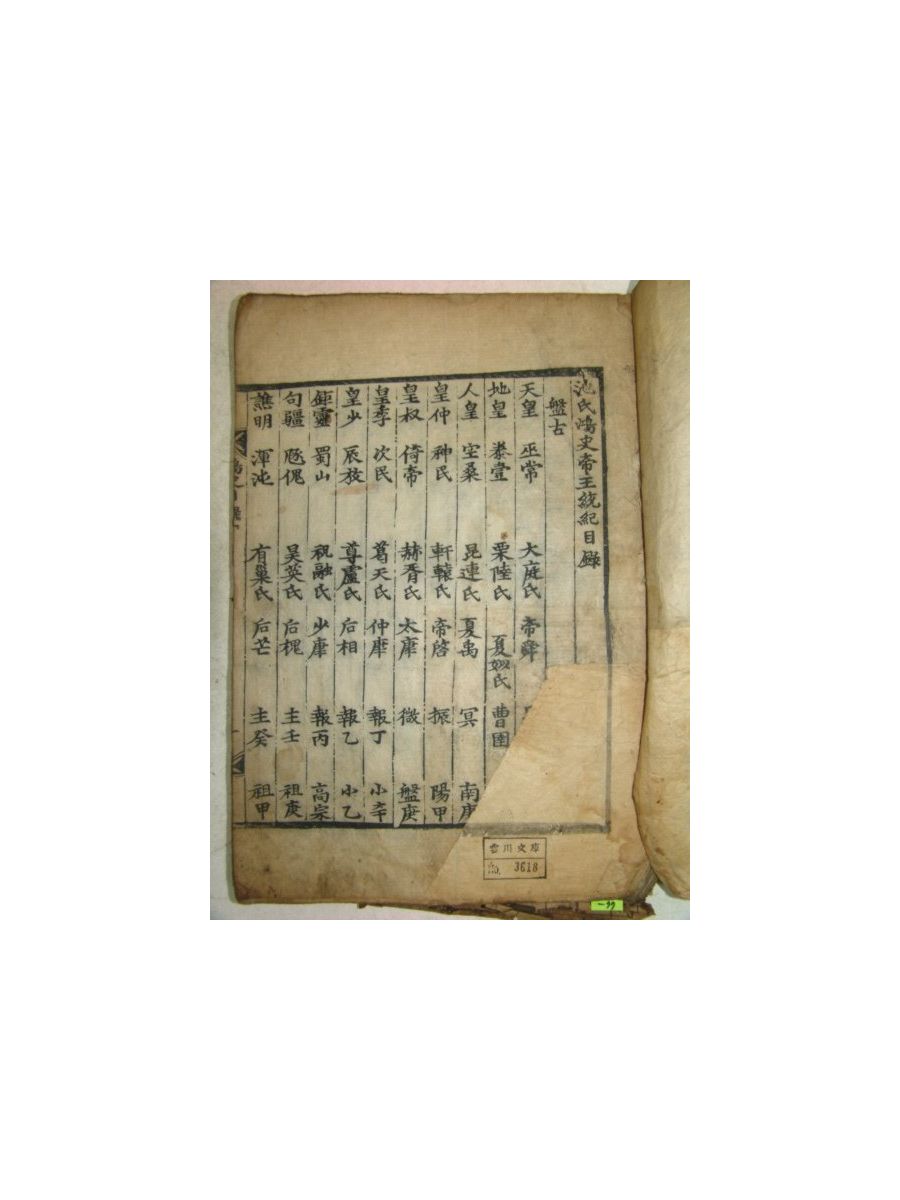 池氏鴻史帝王統紀目錄
盤古
天皇 巫常 大庭氏 帝舜
地皇 泰壹 栗陸氏 夏姒氏 曹圉
人皇 空桑 昆連氏 夏禹 冥 南庚
皇仲 神民 軒轅氏 帝啓 振 陽甲
皇叔 倚帝 赫胥氏 太康 微 盤庚
皇季 次民 葛天氏 仲康 報丁 小辛
皇少 辰放 尊盧氏 后相 報乙 小乙
鉅靈 蜀山 祝融氏 少康 報丙 高宗
句疆 豗傀 昊英氏 后槐 主壬 祖庚
譙明 渾沌 有巢氏 后芒 主癸 祖甲
雲川文庫
No. 3618